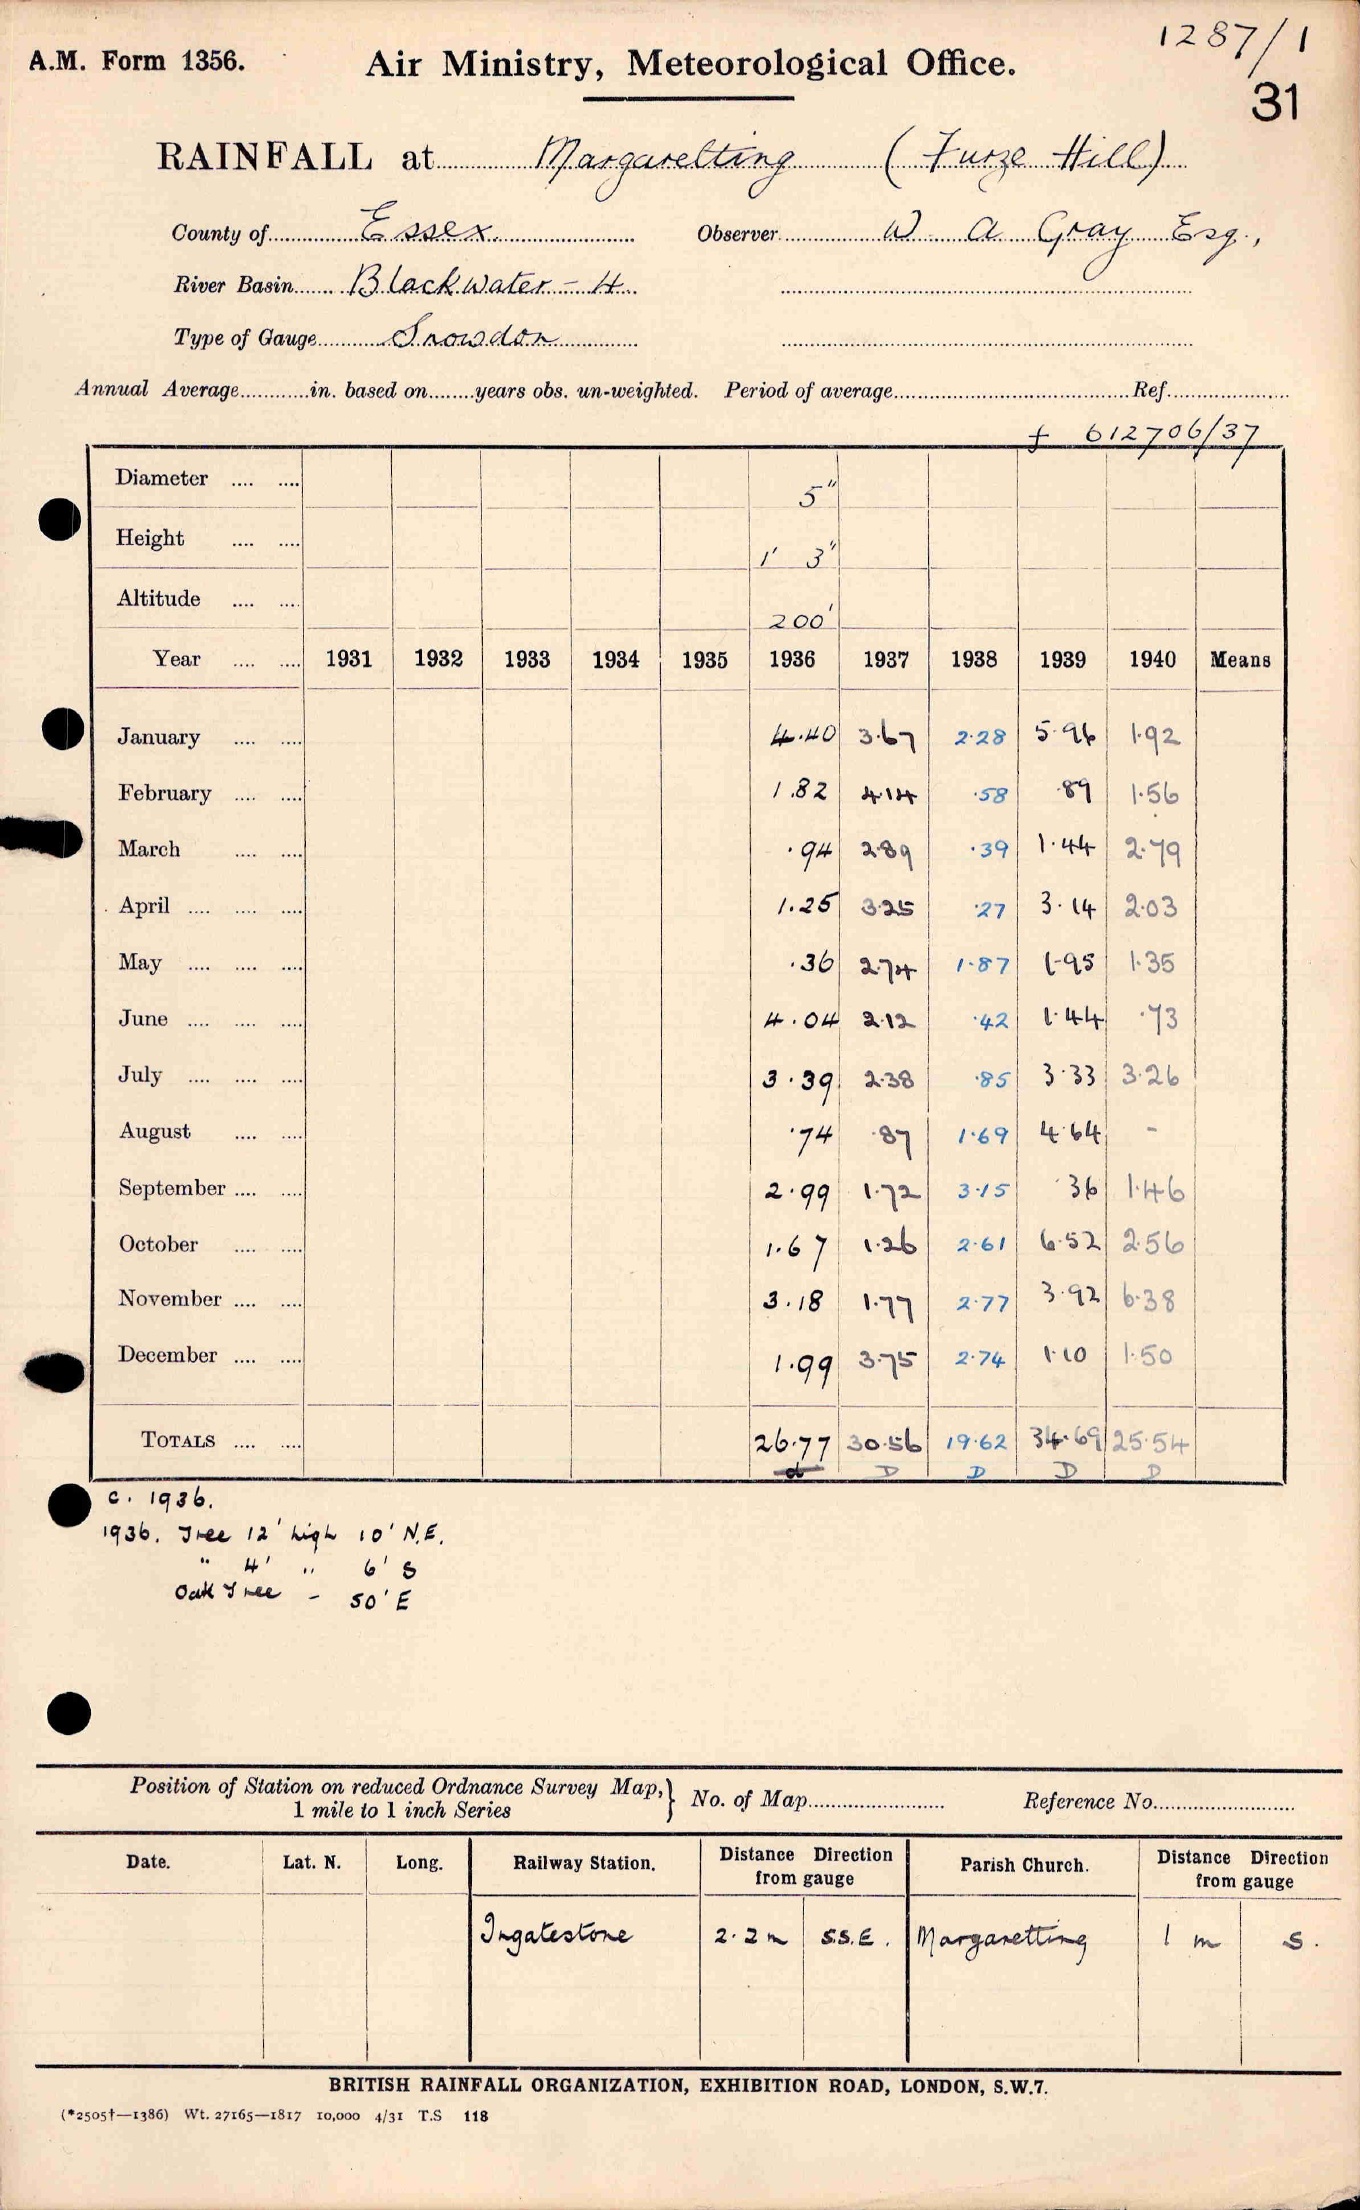 1287/1
A.M. Form 1356. Air Ministry, Meteorological Office.
31
RAINFALL at Margaretting (Furze Hill)
County of Essex. Observer W A Gray Esq.,
River Basin Blackwater - 4
Type of Gauge Snowdon
Annual Average............in. based on........years obs. un-weighted. Period of average........................................Ref.....................
† 612706/37
Diameter .... .... 5"
Height .... .... 1' 3"
Altitude .... .... 200'
Year .... .... 1931 1932 1933 1934 1935 1936 1937 1938 1939 1940 Means
January .... .... 4.40 3.67 2.28 5.96 1.92
February .... .... 1.82 4.14 .58 .89 1.56
March .... .... .94 2.89 .39 1.44 2.79
April .... .... .... 1.25 3.25 .27 3.14 2.03
May .... .... .... .36 2.74 1.87 1.95 1.35
June .... .... .... 4.04 2.12 .42 1.44 .73
July .... .... .... 3.39 2.38 .85 3.33 3.26
August .... .... .74 .87 1.69 4.64 -
September .... .... 2.99 1.72 3.15 .36 1.46
October .... .... 1.67 1.26 2.61 6.52 2.56
November .... .... 3.18 1.77 2.77 3.92 6.38
December .... .... 1.99 3.75 2.74 1.10 1.50
TOTALS .... .... 26.77 30.56 19.62 34.69 25.54
d D D D D
c. 1936.
1936. Tree 12' high 10' N.E.
" 4' " 6' S
Oak Tree - 50' E
Position of Station on reduced Ordnance Survey Map,} No. of Map........................ Reference No.........................
1 mile to 1 inch Series
Date. Lat. N. Long. Railway Station. Distance Direction from gauge Parish Church. Distance Direction from gauge
Ingatestone 2.2 m S.S.E. Margaretting 1 m S.
BRITISH RAINFALL ORGANIZATION, EXHIBITION ROAD, LONDON, S.W.7.
(*2505†—1386) Wt. 27165—1817 10,000 4/31 T.S 118